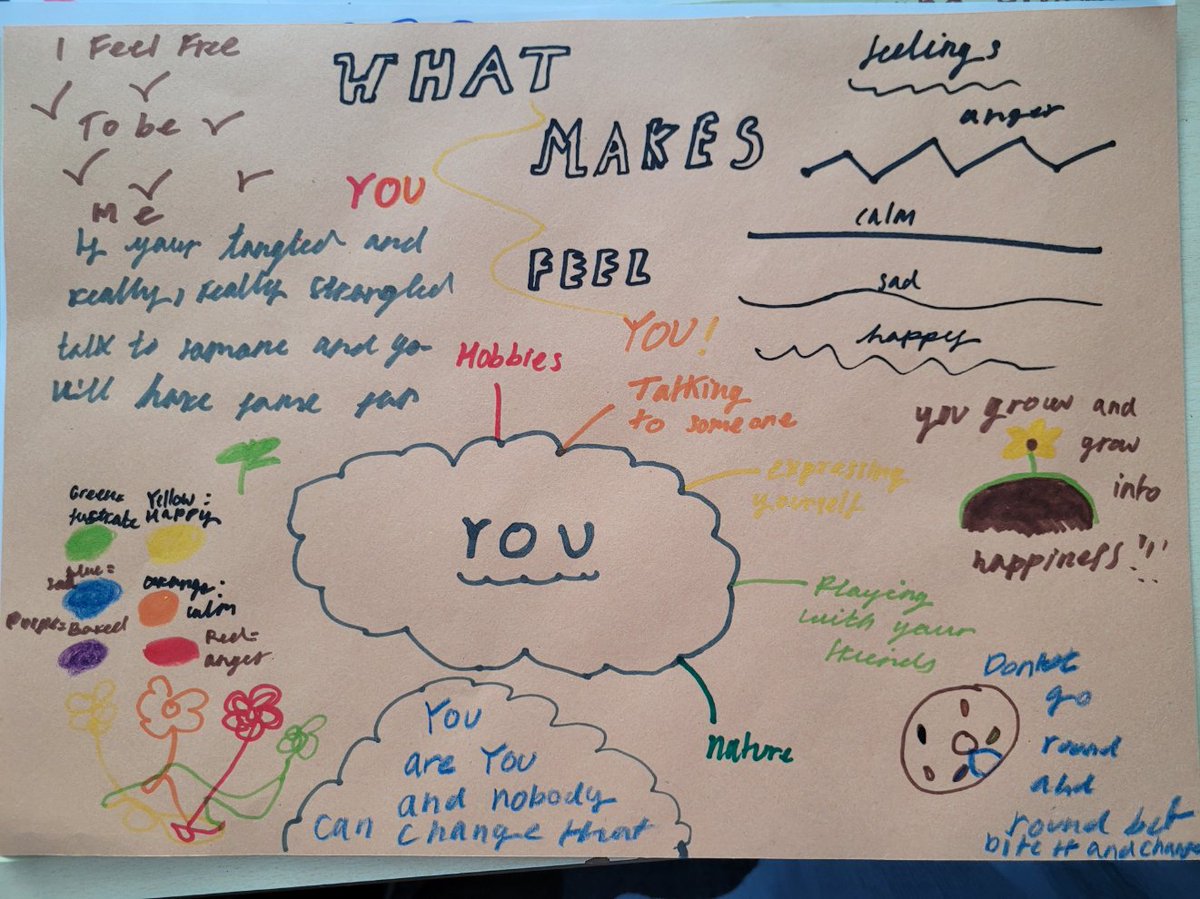 I Feel Free
To be
me
WHAT
MAKES
YOU
FEEL
YOU!
feelings
anger
calm
sad
happy
If your tangled and
really, really strangled
talk to somone and yo
will have some fun
Hobbies
Talking
to someone
expressing
yourself
Playing
with your
friends
nature
YOU
you grow and
grow
into
happiness!!!
Green=
Yellow:
Happy
Blue=
Sad
Orange:
calm
Purple=
Red=
anger
You
are You
and nobody
can change that
Donut
go
round
and
round but
bite it and change